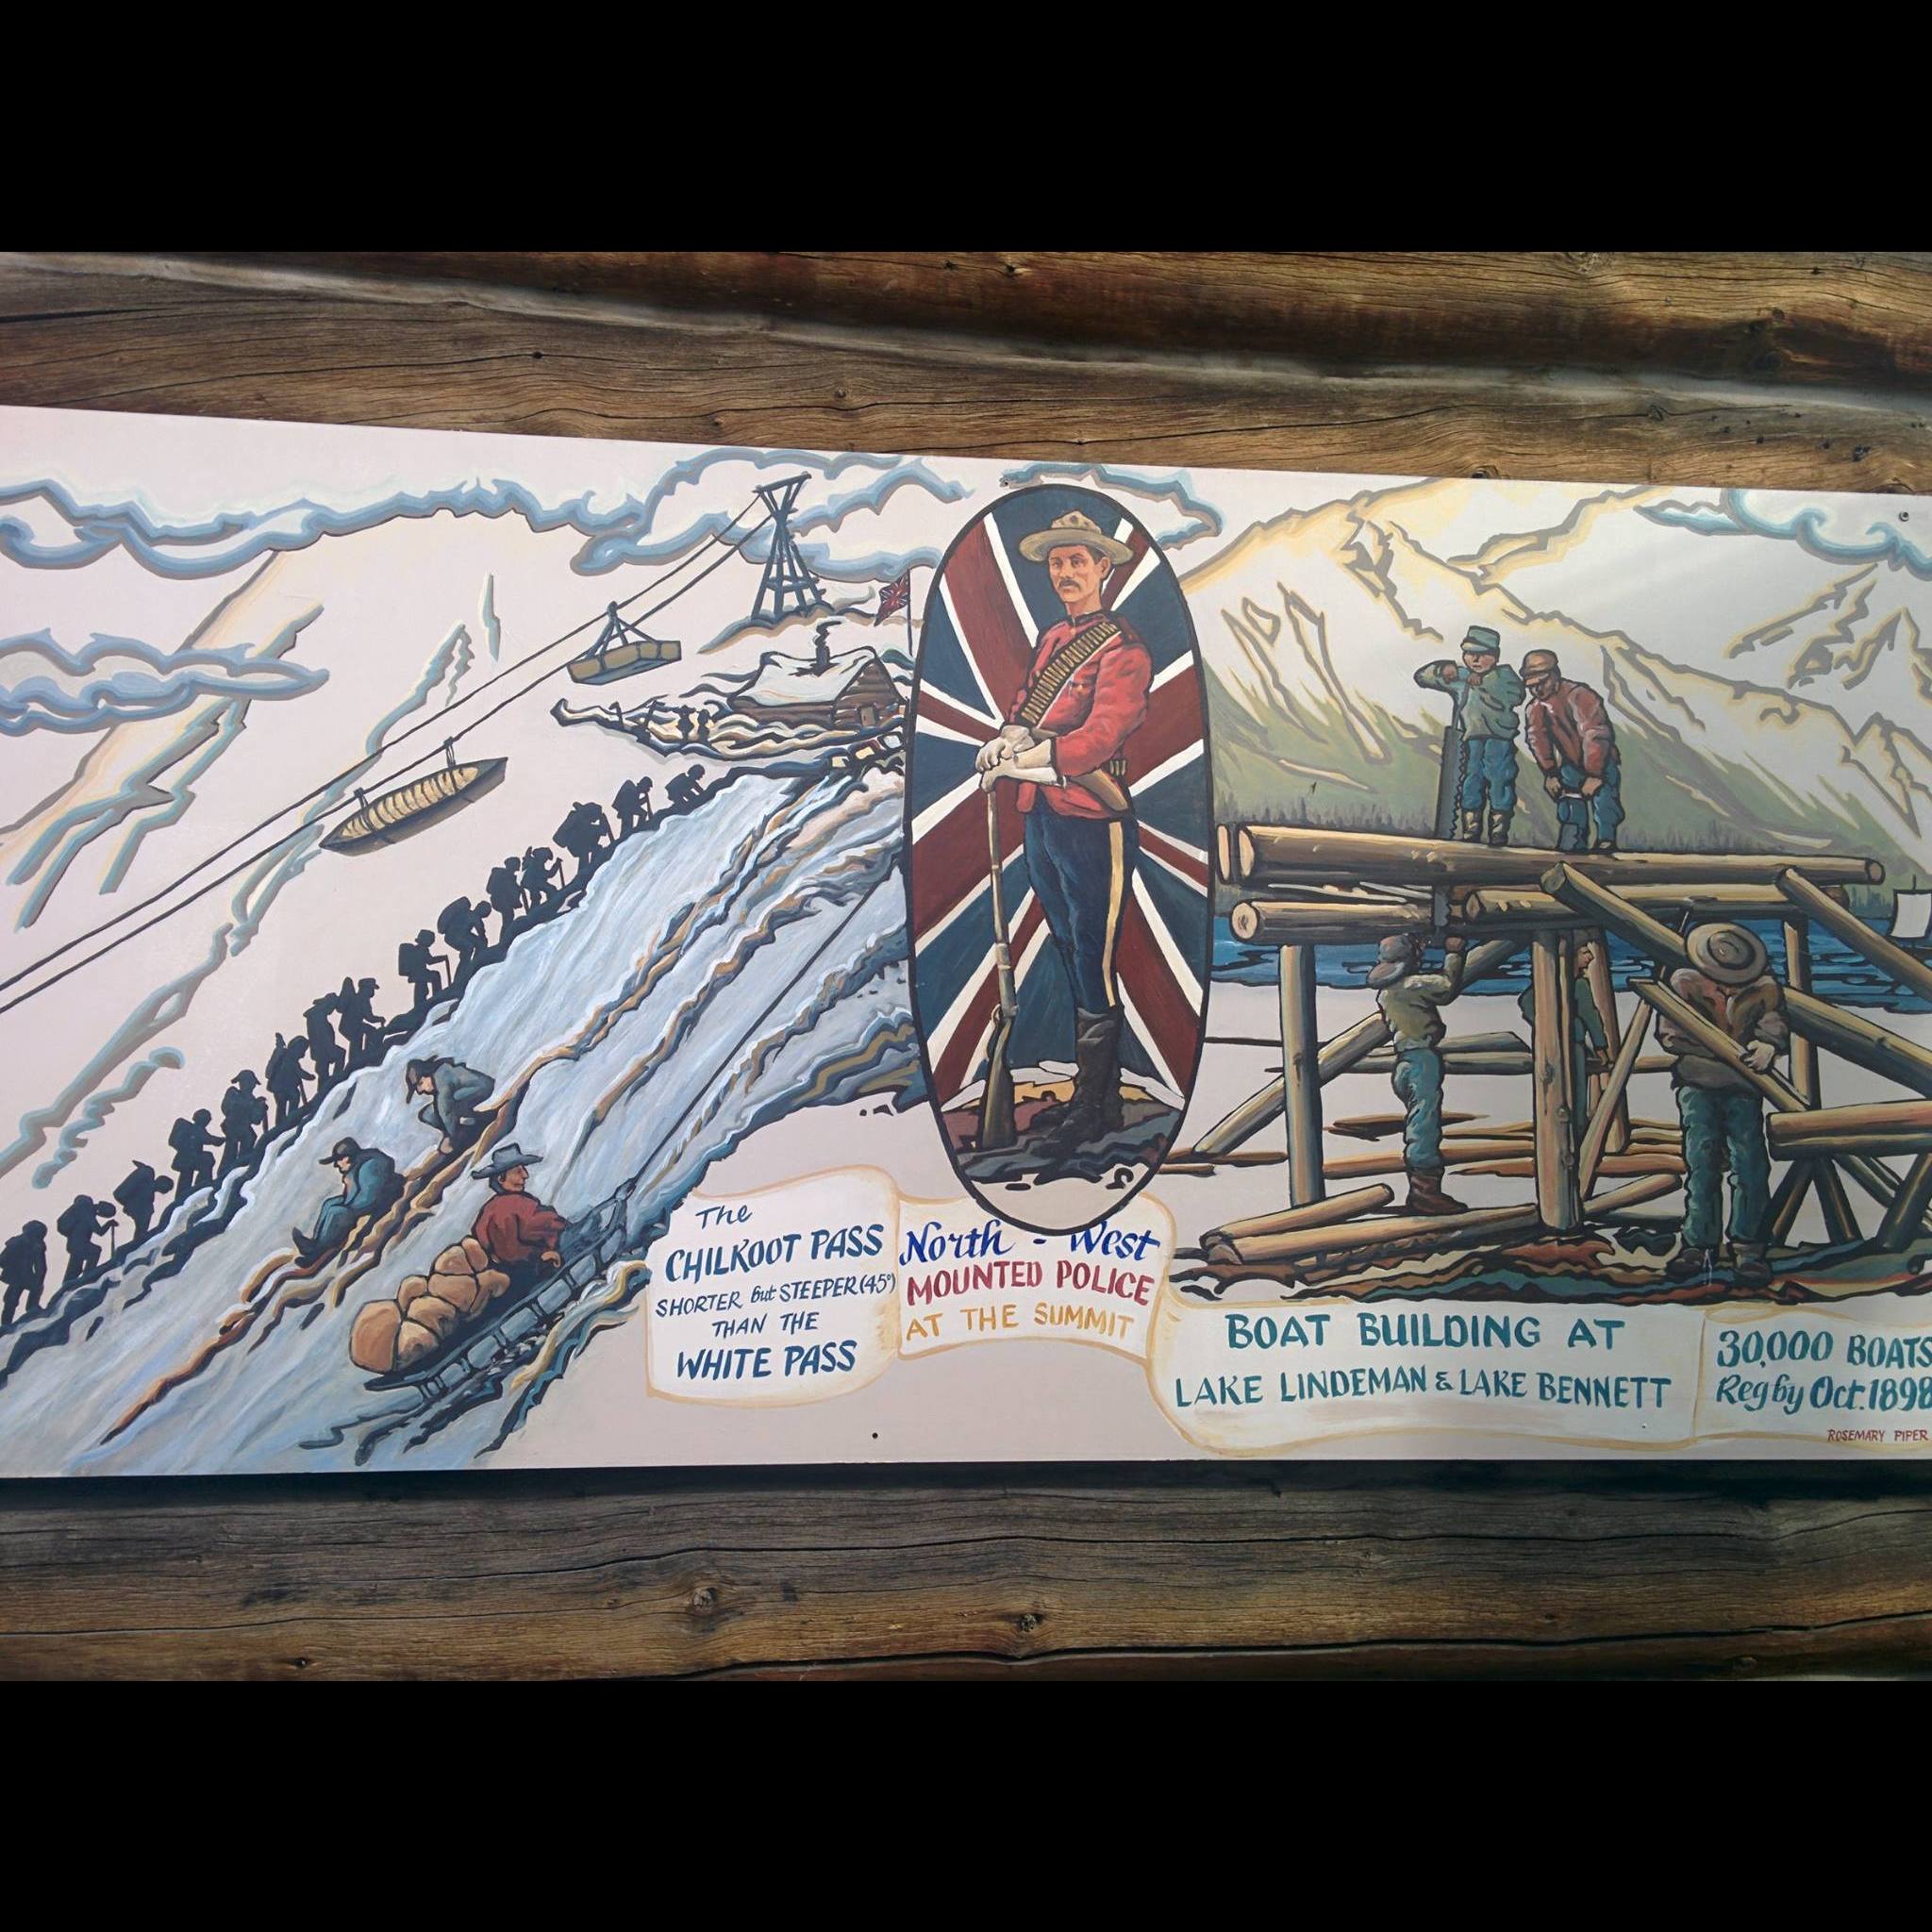 The
CHILKOOT PASS
SHORTER but STEEPER (45°)
THAN THE
WHITE PASS
North - West
MOUNTED POLICE
AT THE SUMMIT
BOAT BUILDING AT
LAKE LINDEMAN & LAKE BENNETT
30,000 BOATS
Reg by Oct. 1898
ROSEMARY PIPER